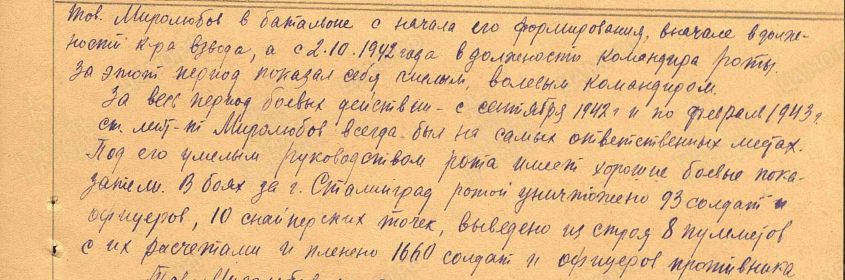 тов. Миролюбов в батальоне с начала его формирования, вначале в долж-
ности к-ра взвода, а с 2.10.1942 года в должности командира роты.
За этот период показал себя смелым, волевым командиром.
За весь период боевых действии - с сентября 1942 г и по февраль 1943 г.
ст. лейт-нт Миролюбов всегда был на самых ответственных местах.
Под его умелым руководством рота имеет хорошие боевые пока-
затели. В боях за г. Сталинград ротой уничтожено 93 солдат и
офицеров, 10 снайперских точек, выведено из строя 8 пулеметов
с их расчетами и пленено 1660 солдат и офицеров противника
Тов. Миролюбов